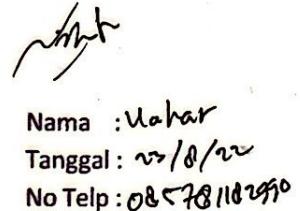 Nama : Uahar
Tanggal : 23/8/22
No Telp : 085781182990